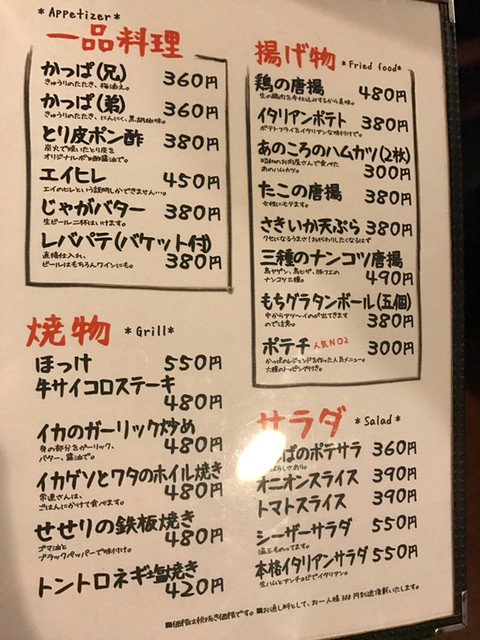 *Appetizer*
一品料理
かっぱ(兄) 360円
きゅうりのたたき、梅油え。
かっぱ(弟) 360円
きゅうりのたたき、にんにく、黒胡椒味。
とり皮ポン酢 380円
炭火で焼いたとり皮を
オリジナルポン酢醤油で。
エイヒレ 450円
エイのヒレという説明しかできません…。
じゃがバター 380円
生ビール二杯はいけます。
レバパテ(バケット付) 380円
直接仕入れ、
ビールはもちろんワインにも。
焼物 *Grill*
ほっけ 550円
牛サイコロステーキ 480円
イカのガーリック炒め 480円
身の部分をガーリック、
バター、醤油で。
イカゲソとワタのホイル焼き 480円
常連さんは、
ごはんにかけて食べます。
せせりの鉄板焼き 480円
ゴマ油と
ブラックペッパーで味付け。
トントロネギ塩焼き 420円
揚げ物 *Fried food*
鶏の唐揚 480円
生の鶏肉を手仕込みするから美味。
イタリアンポテト 380円
ポテトフライをイタリアンな味付けで。
あのころのハムカツ(2枚) 300円
昭和のお肉屋さんで食べた
あのハムカツ。
たこの唐揚 380円
女性にモテます。
さきいか天ぷら 380円
クセになるうまさ!おかわりしたくなるはず
三種のナンコツ唐揚 490円
鳥ヤゲン、鳥ヒザ、豚フエの
ナンコツ三種。
もちグラタンボール(五個) 380円
中からアツ〜イのが出てきます
ので注意。
ポテチ 人気NO2 300円
かっぱのレジェンドを作った人気メニュー。
大様のトッピング付き。
サラダ *Salad*
ぱのポテサラ 360円
ばらしさあり。
オニオンスライス 390円
トマトスライス 390円
シーザーサラダ 550円
温玉ものってます。
本格イタリアンサラダ 550円
生ハムとアンチョビでイタリアン。
■価格は税抜き価格です。■お通し料として、お一人様300円別途頂戴いたします。